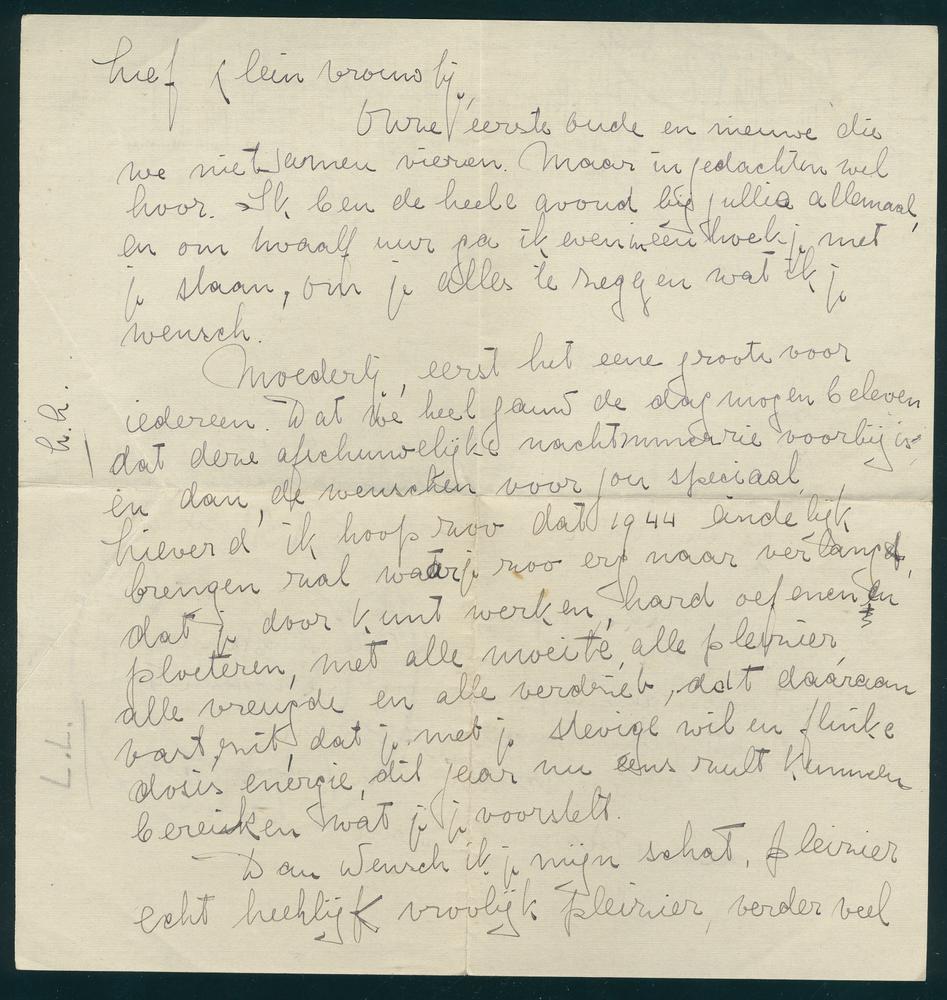 Lief klein vrouwtij,
Onze eerste oude en nieuwe die
we niet samen vieren. Maar in gedachten wel
hoor. Ik ben de heele avond bij jullie allemaal,
en om twaalf uur ga ik even in één hoekje met
je staan, om je alles te zeggen wat ik je
wensch.
Moedertij, eerst het eene groote voor
iedereen. Dat we heel gauw de dag mogen beleven
dat deze afschuwelijke nachtmmerrie voorbij is
en dan, de wenschen voor jou speciaal,
lieverd ik hoop zoo dat 1944 eindelijk
brengen zal waar je zoo erg naar verlangt,
dat je door kunt werken, hard oefenen en
ploeteren, met alle moeite, alle pleizier,
alle vreugde en alle verdriet, dat daaraan
vast zit, dat je met je stevige wil en flinke
dosis energie, dit jaar nu eens zult kunnen
bereiken wat je je voorstelt.
Dan wensch ik je mijn schat, pleizier
echt heerlijk vroolijk pleizier, verder veel
h.h.
L.L.